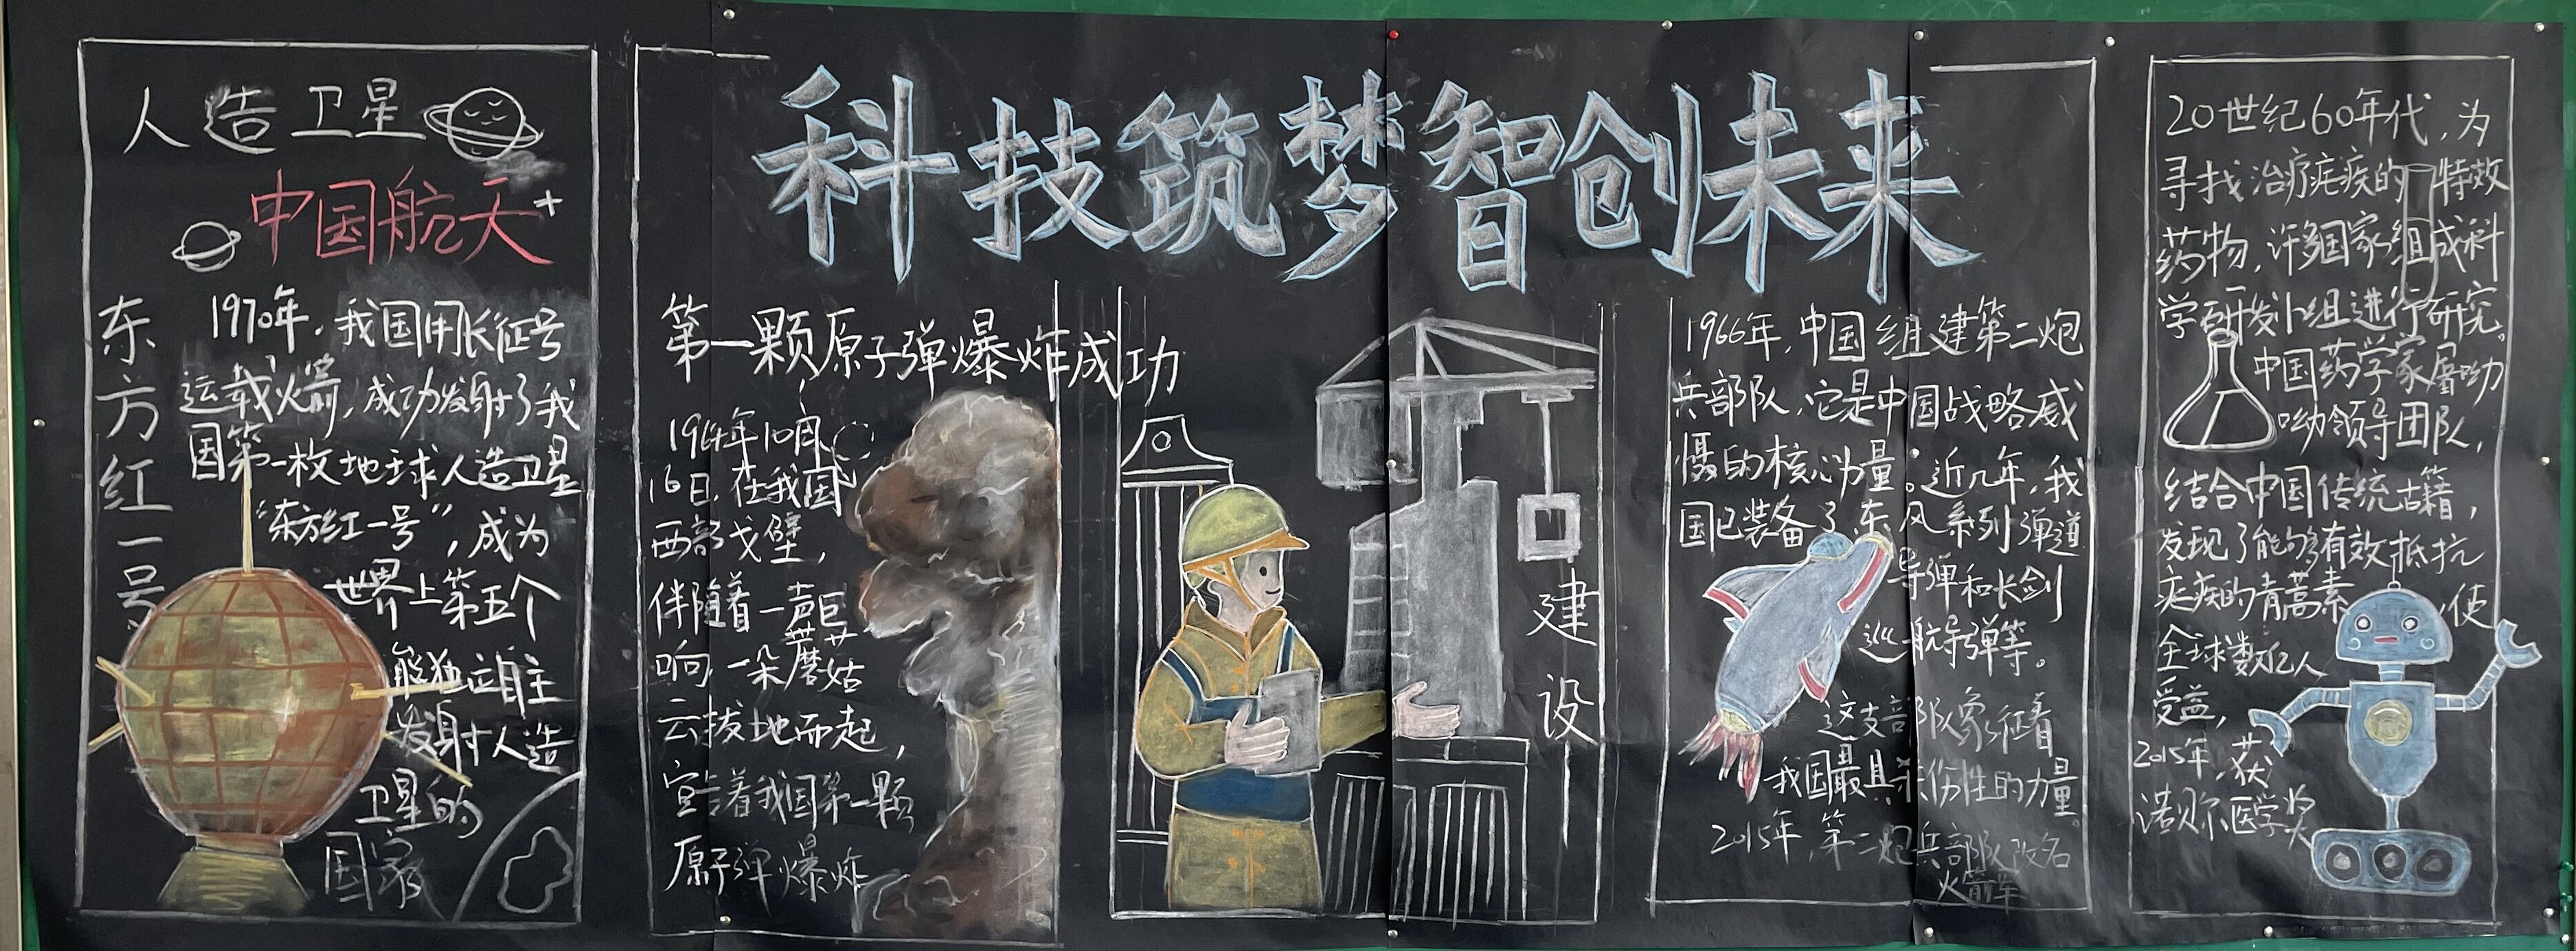 科技筑梦智创未来
人造卫星
中国航天
东方红一号
1970年，我国用长征号
运载火箭，成功发射了我
国第一枚地球人造卫星
“东方红一号”，成为
世界上第五个
能独立自主
发射人造
卫星的
国家
第一颗原子弹爆炸成功
1964年10月
16日，在我国
西部戈壁，
伴随着一声巨
响，一朵蘑菇
云拔地而起，
宣告着我国第一颗
原子弹爆炸
建设
1966年，中国组建第二炮
兵部队，它是中国战略威
慑的核心力量。近几年，我
国已装备了东风系列弹道
导弹和长剑
巡航导弹等。
这支部队象征着
我国最具杀伤性的力量。
2015年，第二炮兵部队改名
火箭军
20世纪60年代，为
寻找治疗疟疾的特效
药物，许多国家组成科
学研发小组进行研究。
中国药学家屠呦
呦领导团队，
结合中国传统古籍，
发现了能够有效抵抗
疟疾的青蒿素，使
全球数亿人
受益，
2015年，获
诺贝尔医学奖